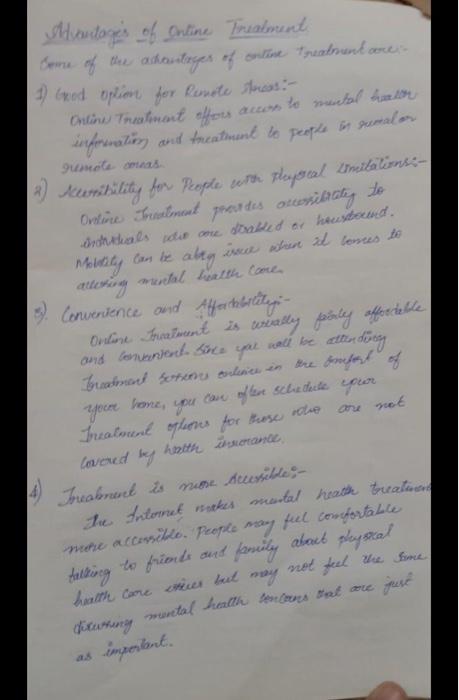 Advantages of Online Treatment
Some of the advantages of online Treatment are:-
1) Good option for Remote Areas:-
Online Treatment offers access to mental health
information and treatment to people in rural or
remote areas.
2) Accessibility for People with Physical Limitations:-
Online Treatment provides accessibility to
individuals who are disabled or housebound.
Mobility can be a big issue when it comes to
accessing mental health care.
3). Convenience and Affordability:-
Online Treatment is usually fairly affordable
and convenient. Since you will be attending
Treatment sessions online in the comfort of
your home, you can often schedule your
Treatment options for those who are not
covered by health insurance.
4) Treatment is more Accessible:-
The Internet makes mental health treatment
more accessible. People may feel comfortable
talking to friends and family about physical
health care issues but may not feel the same
discussing mental health concerns that are just
as important.